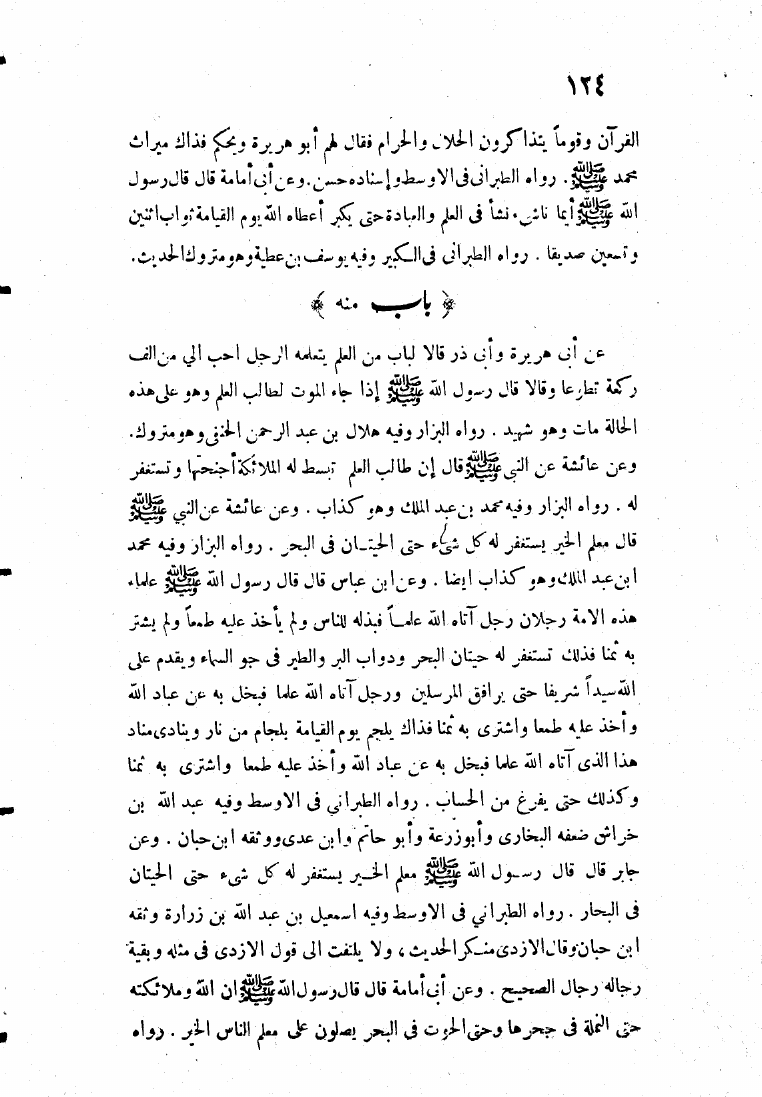 ١٢٤
القرآن وقوماً يتذاكرون الحلال والحرام فقال لهم أبو هريرة ويحكم فذاك ميراث
محمد ﷺ. رواه الطبرانى فى الاوسط وإسناده حسن. وعن أبى أمامة قال قال رسول
الله ﷺ أيما ناشىء نشأ فى العلم والعبادة حتى يكبر أعطاه الله يوم القيامة ثواب اثنين
وتسعين صديقا. رواه الطبرانى فى الكبير وفيه يوسف بن عطية وهو متروك الحديث.
﴿ باب منه ﴾
عن أبى هريرة وأبى ذر قالا لباب من العلم يتعلمه الرجل احب الي من الف
ركعة تطوعا وقالا قال رسول الله ﷺ إذا جاء الموت لطالب العلم وهو على هذه
الحالة مات وهو شهيد. رواه البزار وفيه هلال بن عبد الرحمن الحنفى وهو متروك.
وعن عائشة عن النبى ﷺ قال إن طالب العلم تبسط له الملائكة أجنحتها وتستغفر
له. رواه البزار وفيه محمد بن عبد الملك وهو كذاب. وعن عائشة عن النبي ﷺ
قال معلم الخير يستغفر له كل شىء حتى الحيتان فى البحر. رواه البزار وفيه محمد
ابن عبد الملك وهو كذاب ايضا. وعن ابن عباس قال قال رسول الله ﷺ علماء
هذه الامة رجلان رجل آتاه الله علماً فبذله للناس ولم يأخذ عليه طمعاً ولم يشتر
به ثمنا فذلك تستغفر له حيتان البحر ودواب البر والطير فى جو السماء ويقدم على
الله سيداً شريفا حتى يرافق المرسلين ورجل آتاه الله علما فبخل به عن عباد الله
وأخذ عليه طمعا واشترى به ثمنا فذاك يلجم يوم القيامة بلجام من نار وينادى مناد
هذا الذى آتاه الله علما فبخل به عن عباد الله وأخذ عليه طمعا واشترى به ثمنا
وكذلك حتى يفرغ من الحساب. رواه الطبراني فى الاوسط وفيه عبد الله بن
خراش ضعفه البخارى وأبو زرعة وأبو حاتم وابن عدى ووثقه ابن حبان. وعن
جابر قال قال رسول الله ﷺ معلم الخير يستغفر له كل شىء حتى الحيتان
فى البحار. رواه الطبراني فى الاوسط وفيه اسمعيل بن عبد الله بن زرارة وثقه
ابن حبان وقال الازدى منكر الحديث، ولا يلتفت الى قول الازدى فى مثله وبقية
رجاله رجال الصحيح. وعن أبى أمامة قال قال رسول الله ﷺ ان الله وملائكته
حتى النملة فى جحرها وحتى الحوت فى البحر يصلون على معلم الناس الخير. رواه